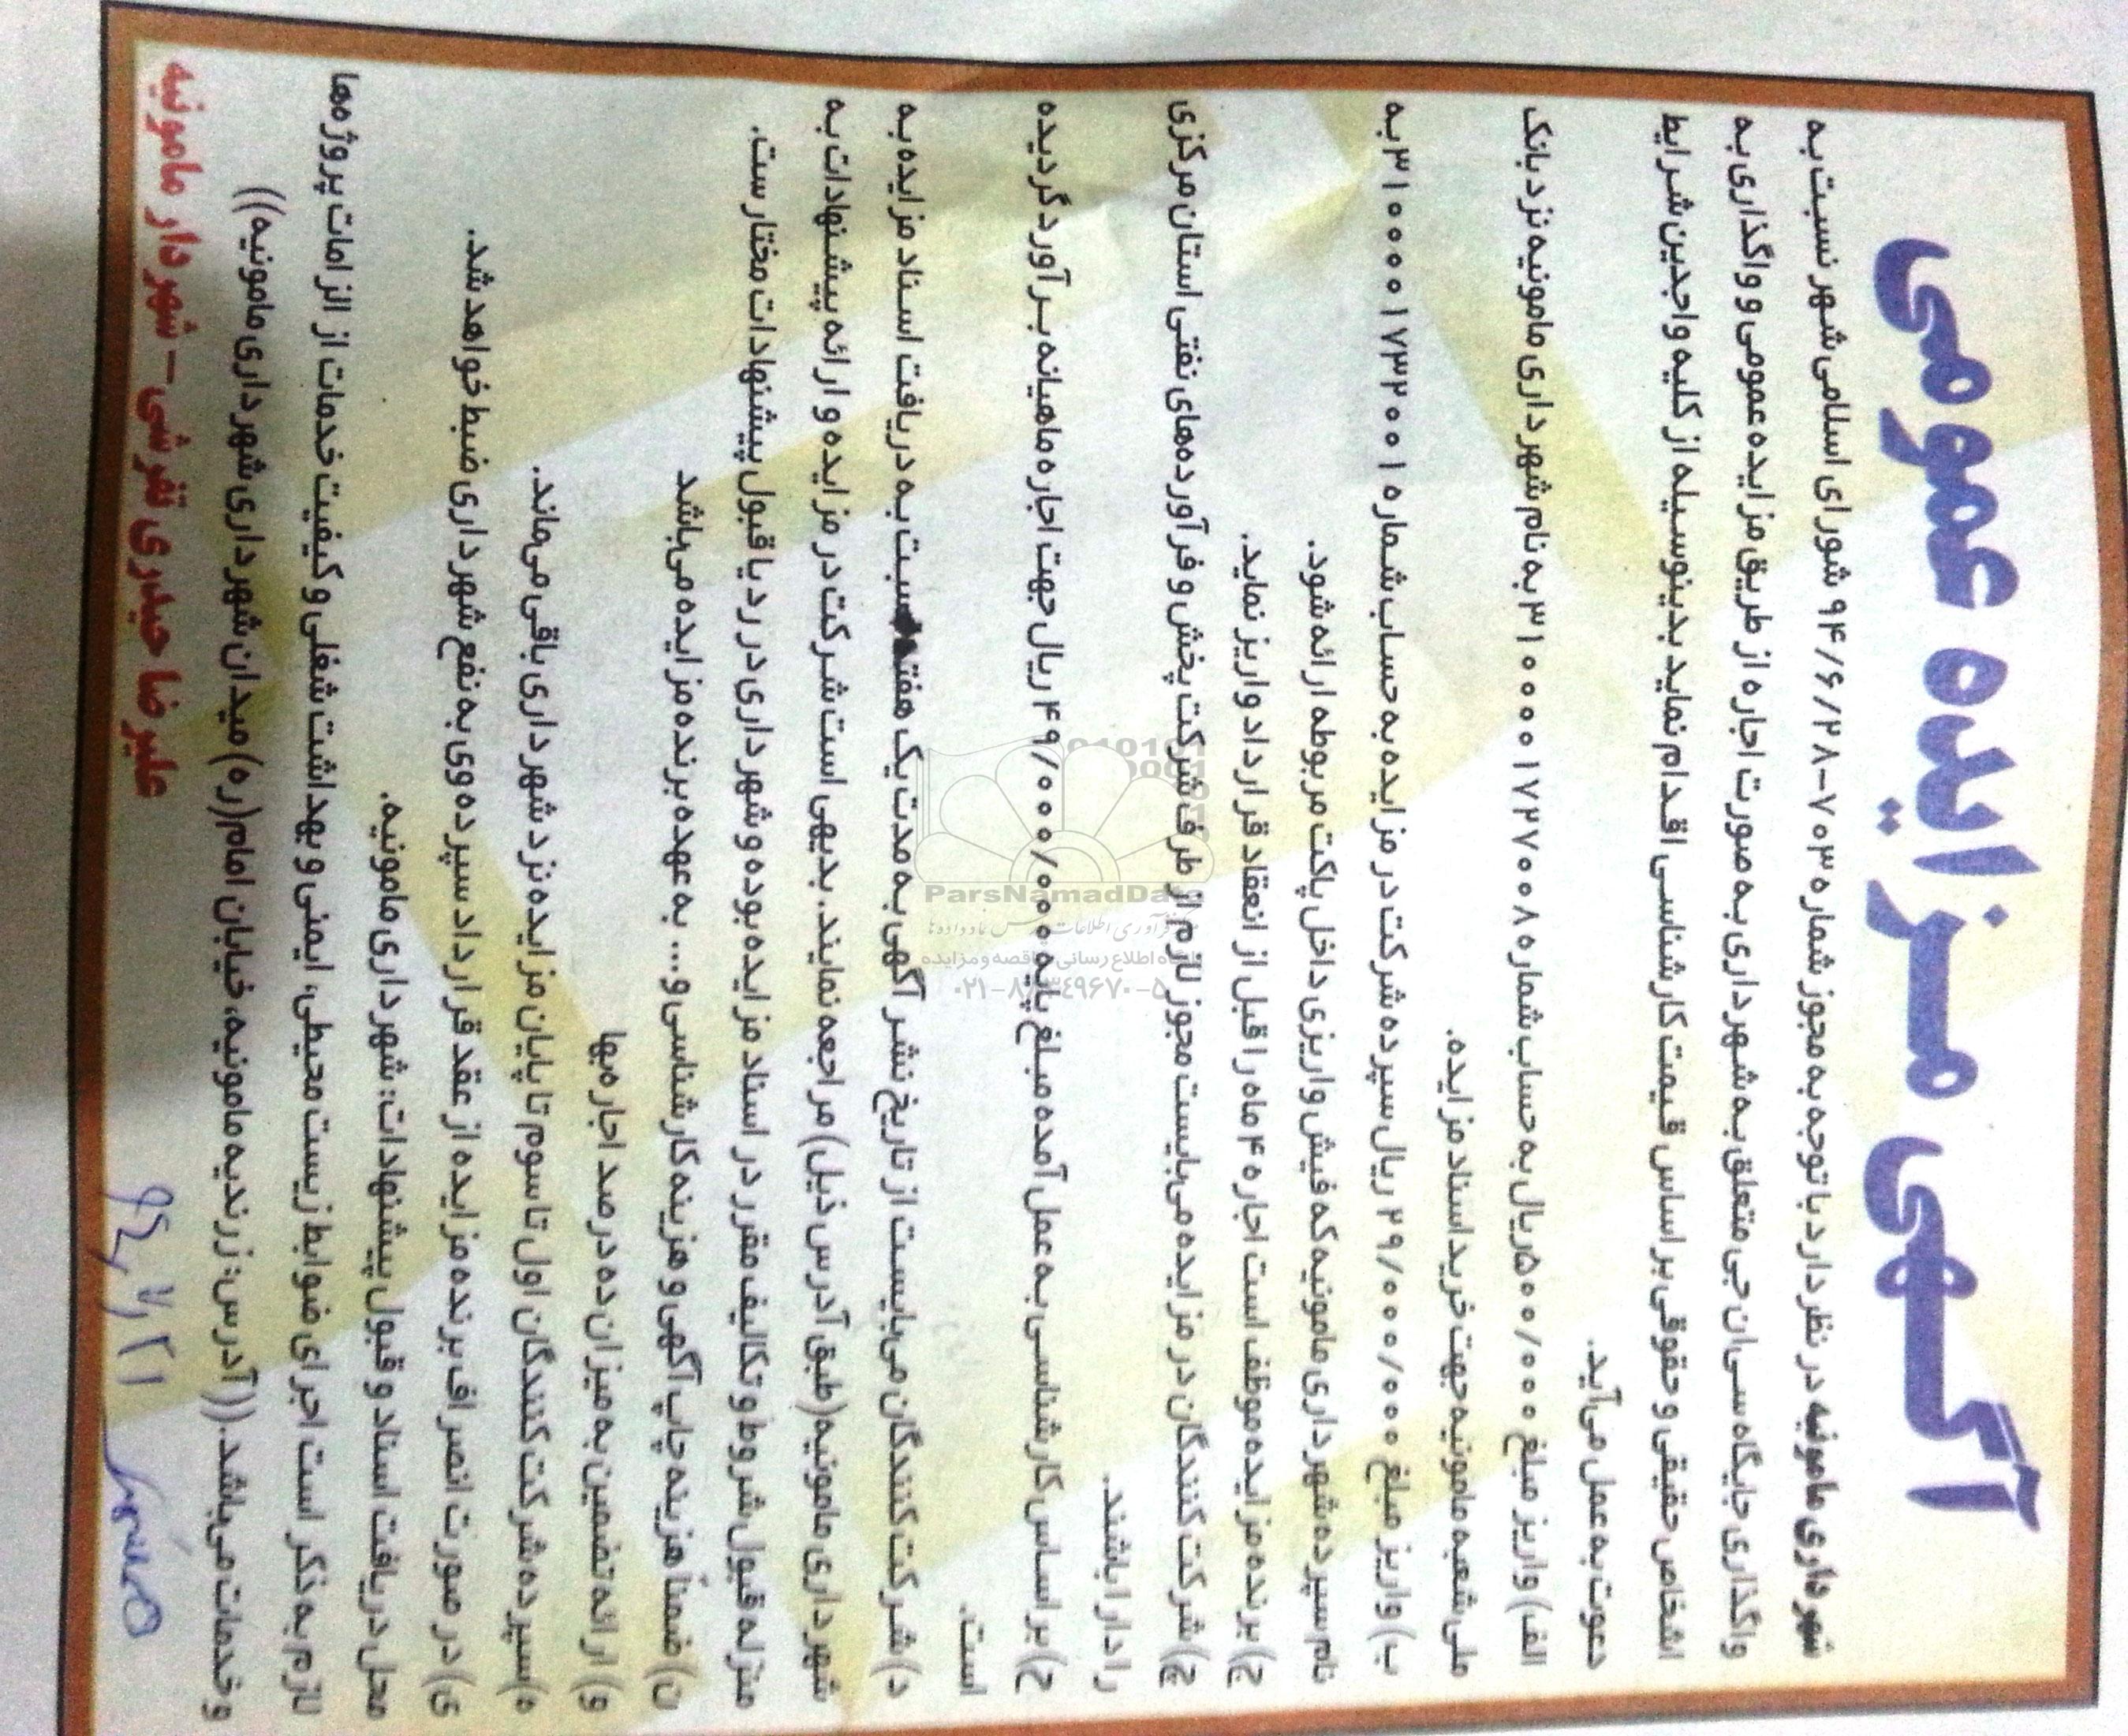 آگهی مزایده عمومی
شهرداری مامونیه در نظر دارد با توجه به مجوز شماره ۷۰۳-۹۴/۶/۲۸ شورای اسلامی شهر نسبت به
واگذاری جایگاه سی ان جی متعلق به شهرداری به صورت اجاره از طریق مزایده عمومی و واگذاری به
اشخاص حقیقی و حقوقی بر اساس قیمت کارشناسی اقدام نماید بدینوسیله از کلیه واجدین شرایط
دعوت به عمل می‌آید.
الف) واریز مبلغ ۵۰۰/۰۰۰ ریال به حساب شماره ۳۱۰۰۰۰۱۷۲۷۰۰۸ به نام شهرداری مامونیه نزد بانک
ملی شعبه مامونیه جهت خرید اسناد مزایده.
ب) واریز مبلغ ۲۹/۰۰۰/۰۰۰ ریال سپرده شرکت در مزایده به حساب شماره ۳۱۰۰۰۰۱۷۳۲۰۰۱ به
نام سپرده شهرداری مامونیه که فیش واریزی داخل پاکت مربوطه ارائه شود.
ج) برنده مزایده موظف است اجاره ۴ ماه را قبل از انعقاد قرارداد واریز نماید.
چ) شرکت کنندگان در مزایده می‌بایست مجوز لازم از طرف شرکت پخش و فرآورده‌های نفتی استان مرکزی
را دارا باشند.
ح) بر اساس کارشناسی به عمل آمده مبلغ پایه ۴۹/۰۰۰/۰۰۰ ریال جهت اجاره ماهیانه برآورد گردیده
است.
د) شرکت کنندگان می‌بایست از تاریخ نشر آگهی به مدت یک هفته نسبت به دریافت اسناد مزایده به
شهرداری مامونیه (طبق آدرس ذیل) مراجعه نمایند. بدیهی است شرکت در مزایده و ارائه پیشنهادات به
منزله قبول شروط و تکالیف مقرر در اسناد مزایده بوده و شهرداری در رد یا قبول پیشنهادات مختار ست.
ن) ضمناً هزینه چاپ آگهی و هزینه کارشناسی و... به عهده برنده مزایده می‌باشد
و) ارائه تضمین به میزان ده درصد اجاره بها
ه) سپرده شرکت کنندگان اول تا سوم تا پایان مزایده نزد شهرداری باقی می‌ماند.
ی) در صورت انصراف برنده مزایده از عقد قرارداد سپرده وی به نفع شهرداری ضبط خواهد شد.
محل دریافت اسناد و قبول پیشنهادات: شهرداری مامونیه.
لازم به ذکر است اجرای ضوابط زیست محیطی، ایمنی و بهداشت شغلی و کیفیت خدمات از الزامات پروژه‌ها
و خدمات می‌باشد. ((آدرس: زرندیه مامونیه، خیابان امام(ره) میدان شهرداری شهرداری مامونیه))
علیرضا حیدری تفرشی – شهردار مامونیه
ParsNamadData
۰۲۱-۸۸۳۴۹۶۷۰-۵